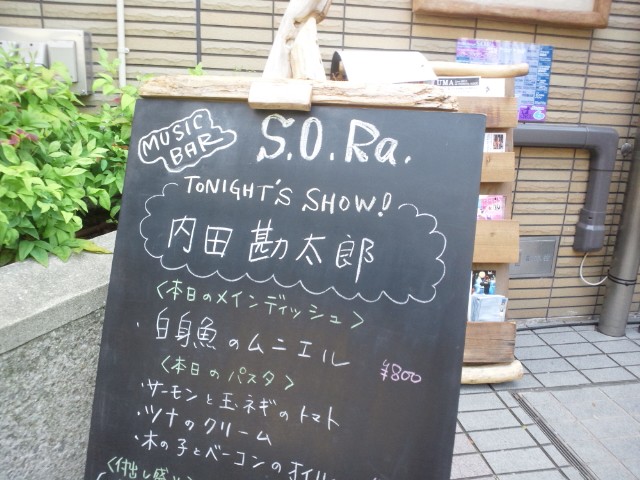 MUSIC
BAR
S.O.Ra.
TONIGHT'S SHOW!
内田勘太郎
<本日のメインディッシュ>
・白身魚のムニエル
¥800
<本日のパスタ>
・サーモンと玉ネギのトマト
・ツナのクリーム
・木の子とベーコンのオイル